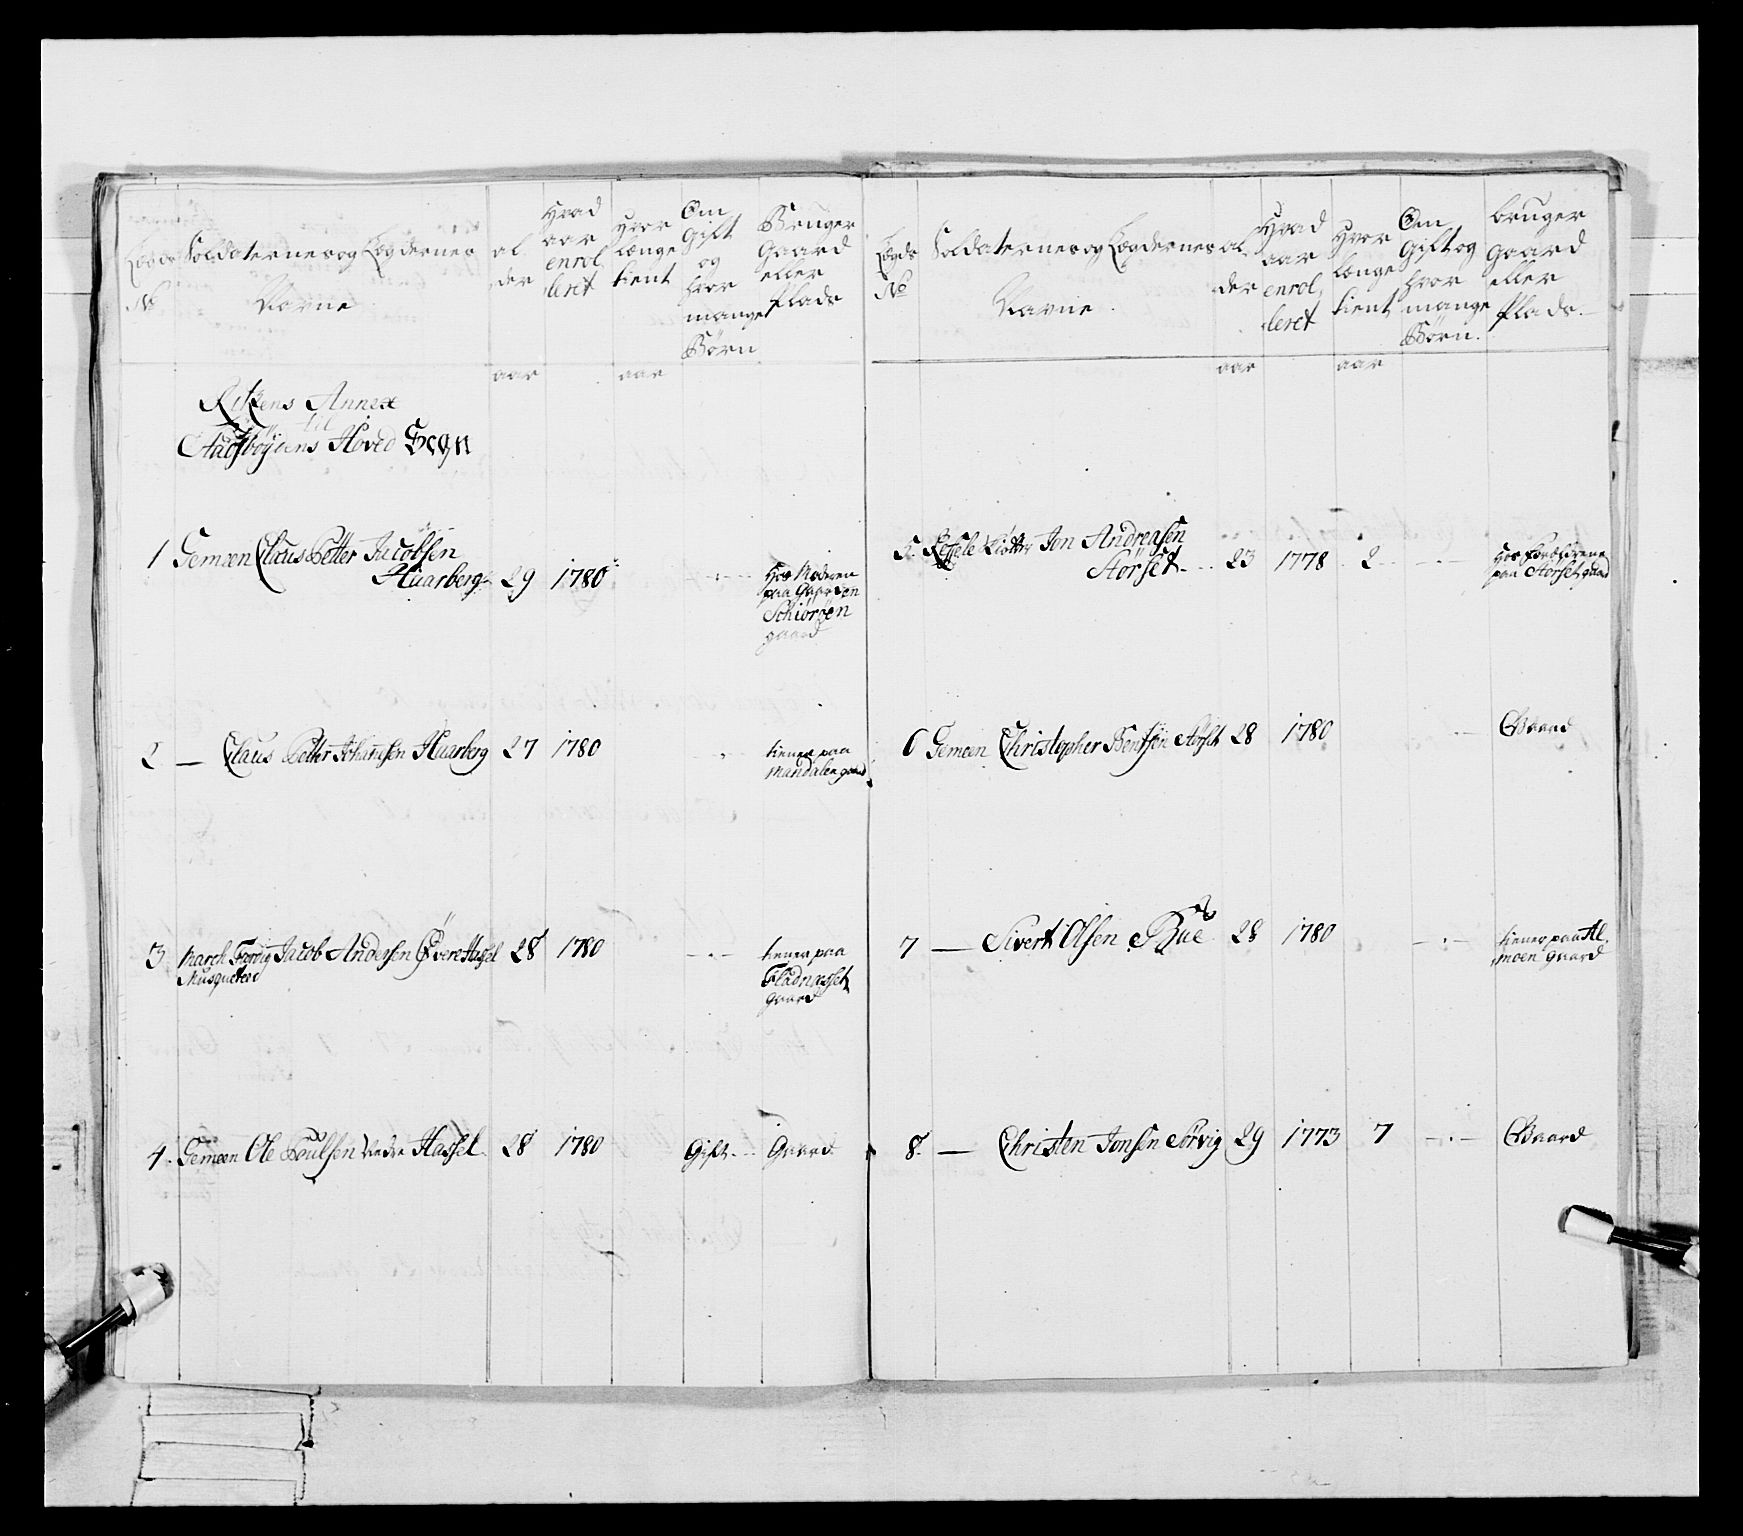 Lægds
No
Soldaternes og Lægdernes
Navne
al
der
aar
Hvad
aar
enrol
leret
Hvor
længe
tient
aar
Om
Gift
og
hvor
mange
Børn
Bruger
Gaard
eller
Plads
Rißens Annex
til
Stadsbøydens Hoved Sogn
1 Gemeen Claus Petter Jacobsen
Huarberg 29 1780 - . -
Hos Moderen
paa Gaarden
Schiørøen
gaard
2 — Claus Petter Johansen Huarberg 27 1780
tiener paa
Mandalen gaard
3 March Færdig Jacob Andersen Øvere Hassel 28 1780 - . -
Musqueteer
tiener paa
Fladnesset
gaard
4. Gemeen Ole Poulsen Nedre Hassel 28 1780 Gift Gaard
Lægds
No
Soldaternes og Lægdernes
Navne
al
der
aar
Hvad
aar
enrol
leret
Hvor
længe
tient
aar
Om
Gift og
hvor
mange
Børn.
bruger
Gaard
eller
Plads.
5. Jon Andreasen
Størset 23 1778 2 - . -
Hos Forældrene
paa Størset gaard
6 Gemeen Christopher Bentsen Størset 28 1780 Gaard
7 — Sivert Olsen Rue 28 1780 - . -
tiener paa
moen gaard
8. — Christen Jonsen Sørvig 29 1773 7 - . - Gaard